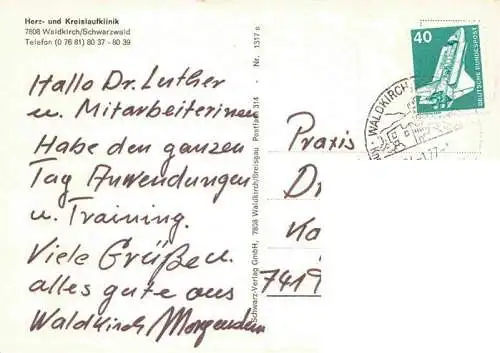 Herz- und Kreislaufklinik
7808 Waldkirch/Schwarzwald
Telefon (0 76 81) 80 37 - 80 39
Hallo Dr. Luther
u. Mitarbeiterinnen
Habe den ganzen
Tag Anwendungen
u. Training.
Viele Grüße u.
alles gute aus
Waldkirch
Schwarz-Verlag GmbH, 7808 Waldkirch/Breisgau Postfach 314 - Nr. 1317 s
40
DEUTSCHE BUNDESPOST
WALDKIRCH
Praxis
D
Ka
7419